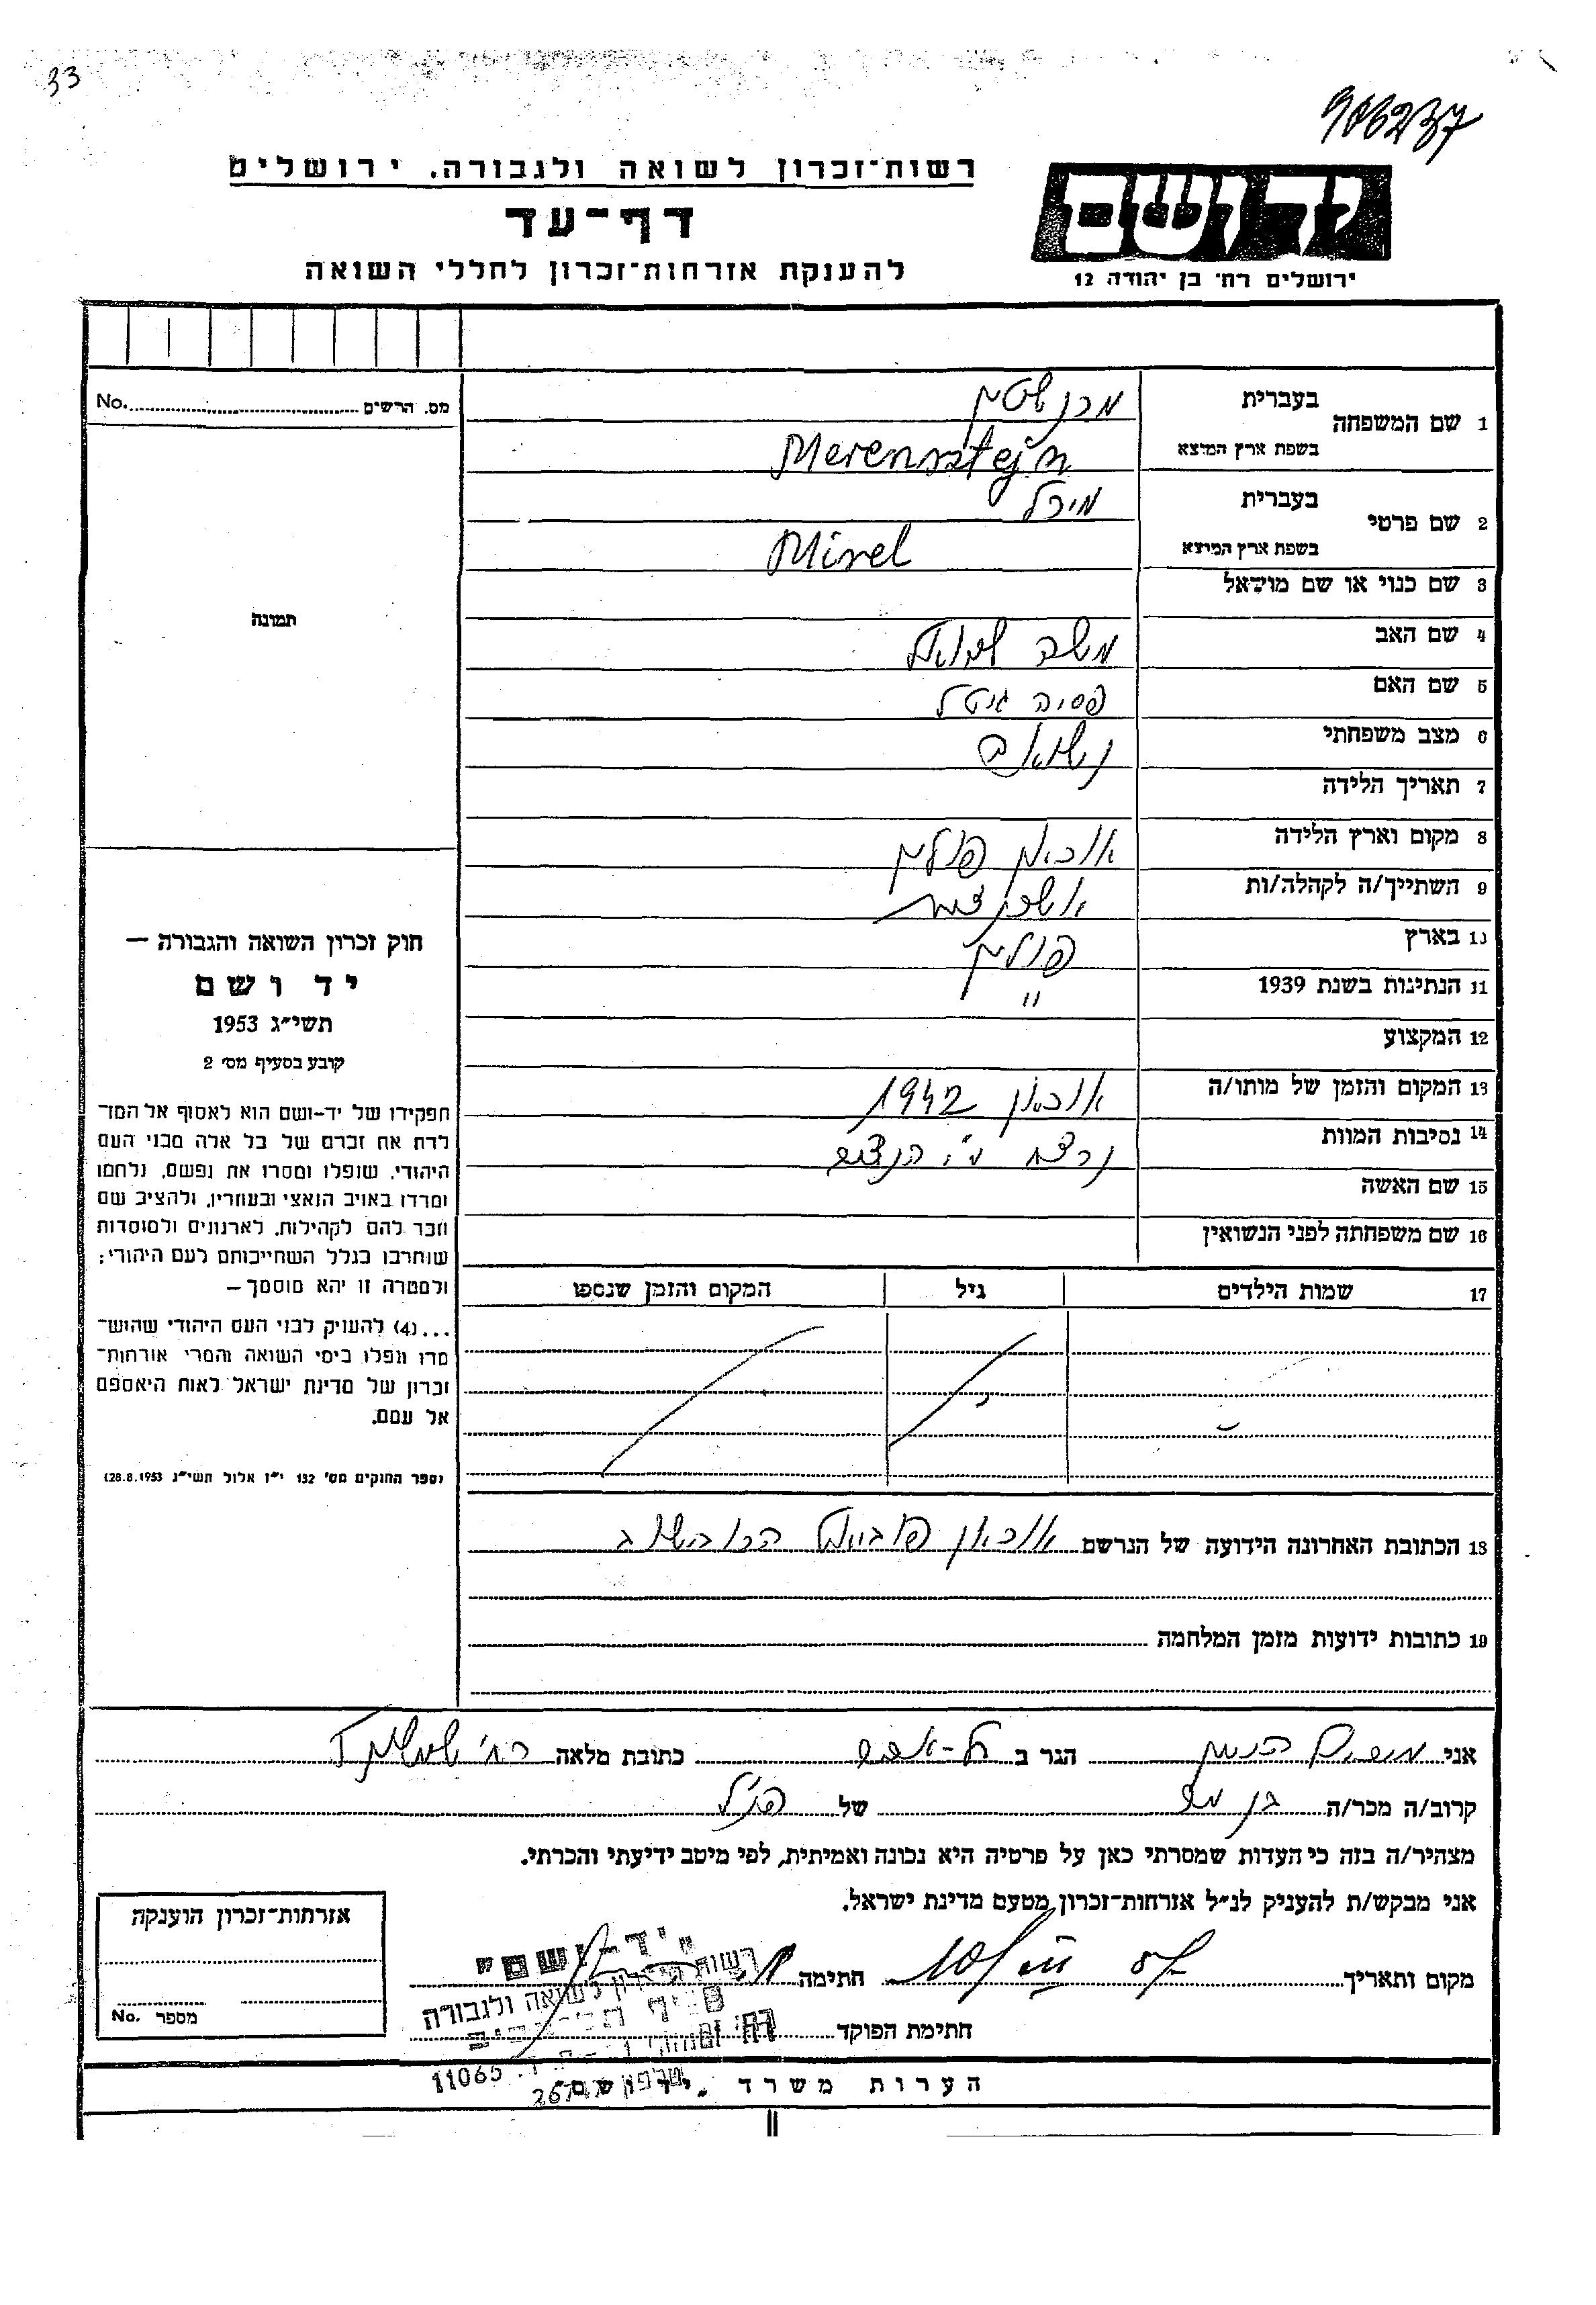 33
906237
רשות־זכרון לשואה ולגבורה, ירושלים
דף־עד
להענקת אזרחות־זכרון לחללי השואה
יד ושם
ירושלים רח׳ בן יהודה 12
מס. הרשים No.
תמונה
1 שם המשפחה בעברית מרנשטין
בשפת ארץ המוצא Merensztejn
2 שם פרטי בעברית מירל
בשפת ארץ המוצא Mirel
3 שם כנוי או שם מושאל
4 שם האב משה שמואל
5 שם האם פסיה גיטל
6 מצב משפחתי נשואה
7 תאריך הלידה
8 מקום וארץ הלידה פולין
9 השתייך/ה לקהלה/ות
10 בארץ פולין
11 הנתינות בשנת 1939 "
12 המקצוע
13 המקום והזמן של מותו/ה 1942
14 נסיבות המוות נרצח ע"י הנצים
15 שם האשה
16 שם משפחתה לפני הנשואין
17 שמות הילדים גיל המקום והזמן שנספו
18 הכתובת האחרונה הידועה של הנרשם
19 כתובות ידועות מזמן המלחמה
חוק זכרון השואה והגבורה —
יד ושם
תשי״ג 1953
קובע בסעיף מס׳ 2
תפקידו של יד־ושם הוא לאסוף אל המו־
לדת את זכרם של כל אלה מבני העם
היהודי, שנפלו ומסרו את נפשם, נלחמו
ומרדו באויב הנאצי ובעוזריו, ולהציב שם
וזכר להם לקהילות, לארגונים ולמוסדות
שנחרבו בגלל השתייכותם לעם היהודי;
ולמטרה זו יהא מוסמך —
...(4) להעניק לבני העם היהודי שהוש־
מדו ונפלו בימי השואה והמרי אזרחות־
זכרון של מדינת ישראל לאות היאספם
אל עמם.
(ספר החוקים מס׳ 132 י״ז אלול תשי״ג 28.8.1953)
אני הגר ב תל-אביב כתובת מלאה רח׳
קרוב/ה מכר/ה של הנ״ל
מצהיר/ה בזה כי העדות שמסרתי כאן על פרטיה היא נכונה ואמיתית, לפי מיטב ידיעתי והכרתי.
אני מבקש/ת להעניק לנ״ל אזרחות־זכרון מטעם מדינת ישראל.
מקום ותאריך חתימה
חתימת הפוקד
אזרחות־זכרון הוענקה
מספר No.
"יד-ושם"
רשות הזיכרון לשואה ולגבורה
סניף תל־אביב
11065
הערות משרד "יד ושם"